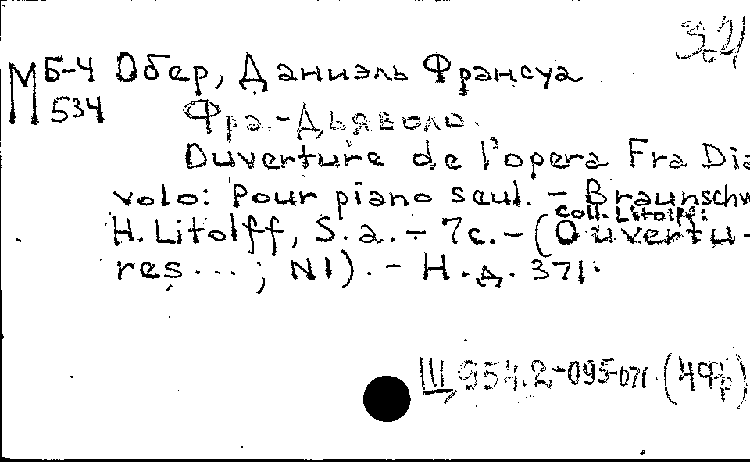 М Б-4 Обер, Даниэль Франсуа
534 Фра-Дьяволо.
Ouverture de l'opera Fra Dia
volo: Pour piano seul. - Braunschw
Coll. Litolff:
H. Litolff, S.a. - 7c. - (Ouvertu-
res ... ; N1). - Н.д. 371.
Щ954.2-095-071 (4Фр)